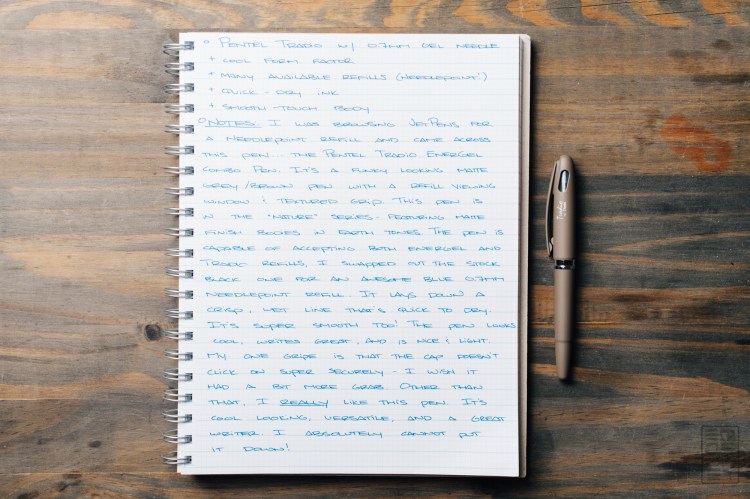 o Pentel Tradio w/ 0.7mm Gel Needle
+ Cool form factor
+ Many available refills (needlepoint!)
+ Quick-dry ink
+ Smooth-touch body
o Notes: I was browsing JetPens for
a needlepoint refill and came across
this pen. The Pentel Tradio EnerGel
combo pen. It's a funky looking matte
grey/brown pen with a refill viewing
window & textured grip. This pen is
in the "nature" series - featuring matte
finish bodies in earth tones. The pen is
capable of accepting both EnerGel and
Tradio refills, I swapped out the stock
black one for an awesome blue 0.7mm
needlepoint refill. It lays down a
crisp, wet line that's quick to dry.
It's super smooth too! The pen looks
cool, writes great, and is nice & light.
My one gripe is that the cap doesn't
click on super securely - I wish it
had a bit more grab. Other than
that, I really like this pen. It's
cool looking, versatile, and a great
writer. I absolutely cannot put
it down!